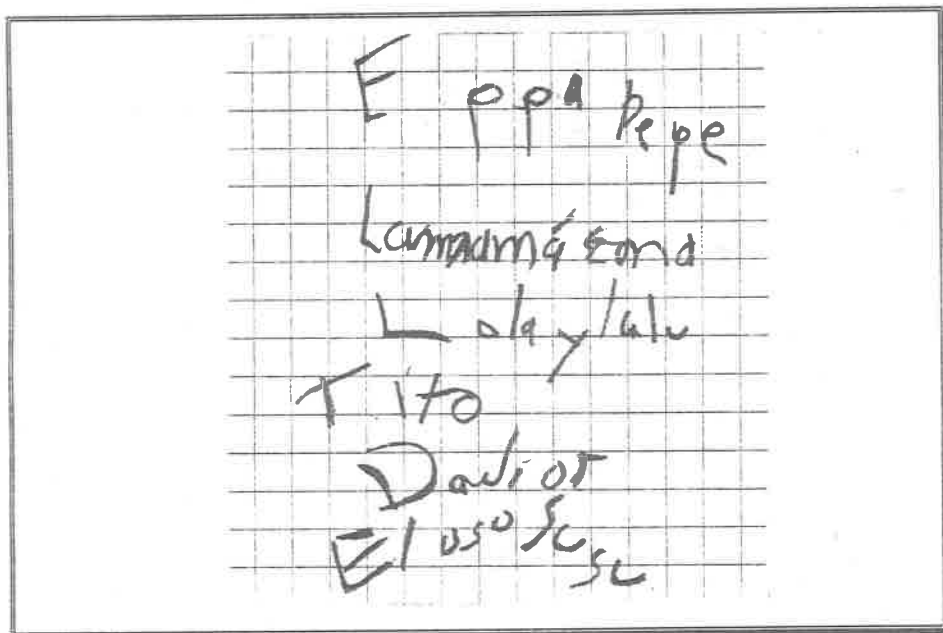 E ppa pepe
Lamamá Ema
Lola y lalu
Tito
El oso Susu